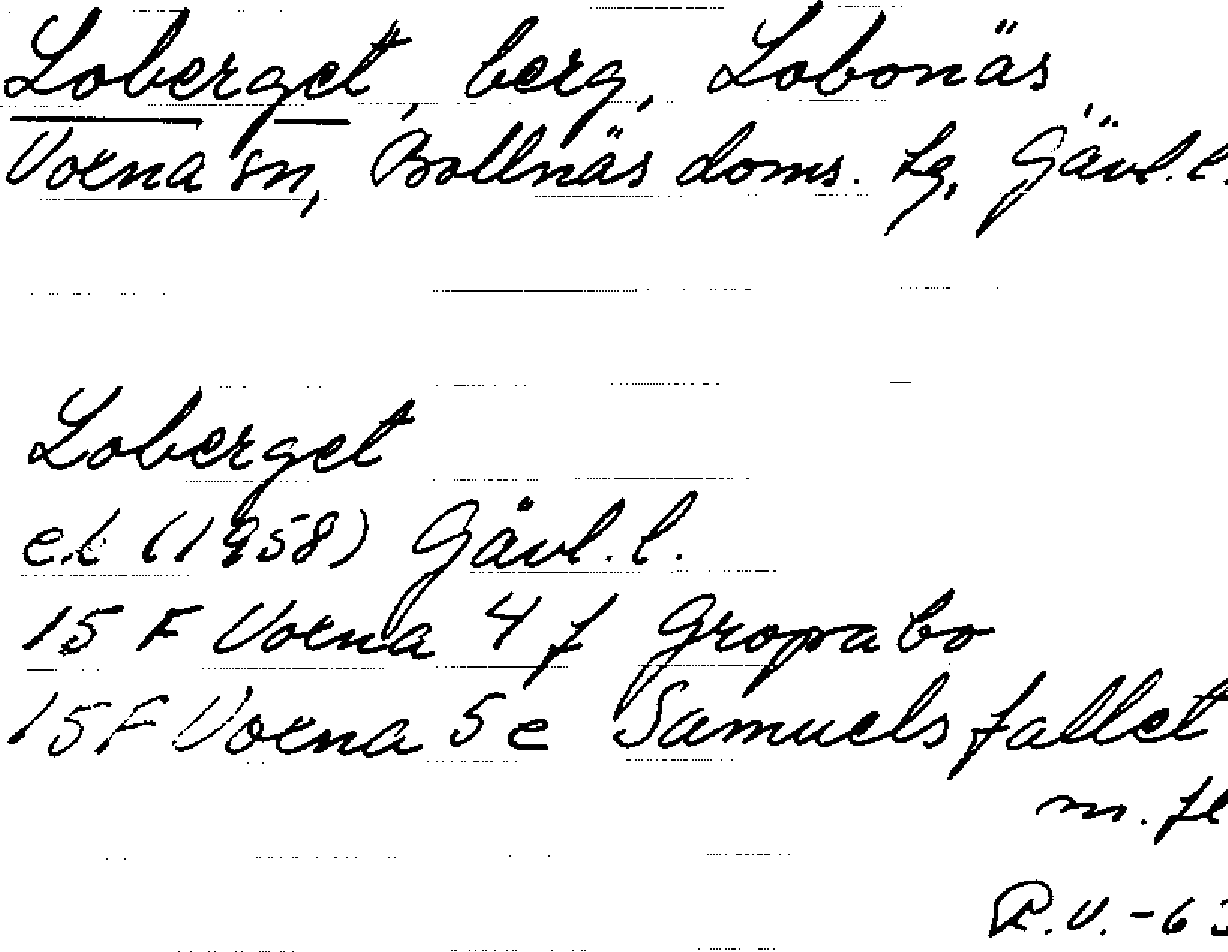 Loberget, berg, Lobonäs,
Voxna sn, Bollnäs doms. tg, Gävl. l.
Loberget
e.k (1958) Gävl. l.
15 F Voxna 4 f Gropabo
15 F Voxna 5 e Samuelsfallet
m. fl
R.V. - 63